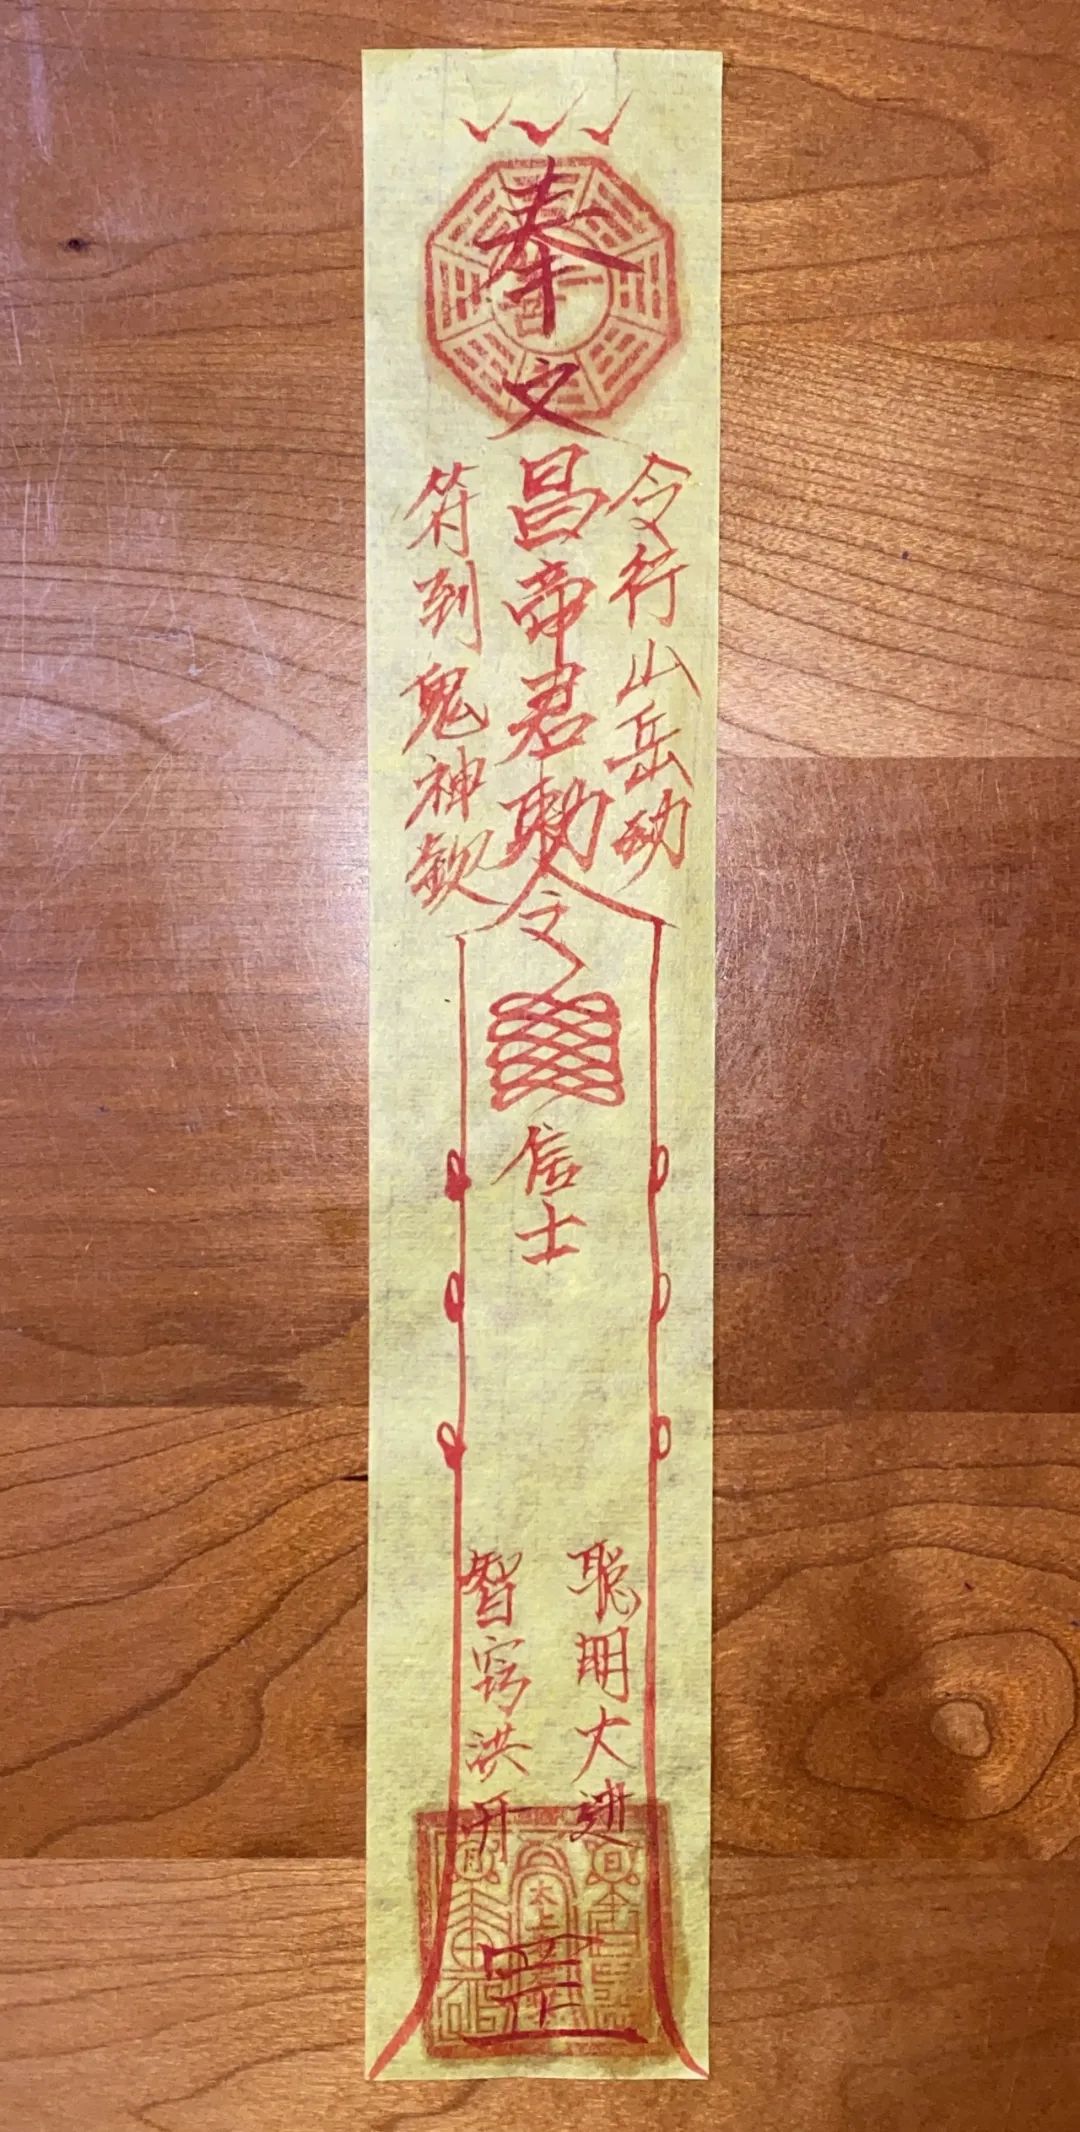 奉
文昌帝君勅令
令行山岳动
符到鬼神钦
信士
聪明大进
智窍洪开
日
月
太上
罡